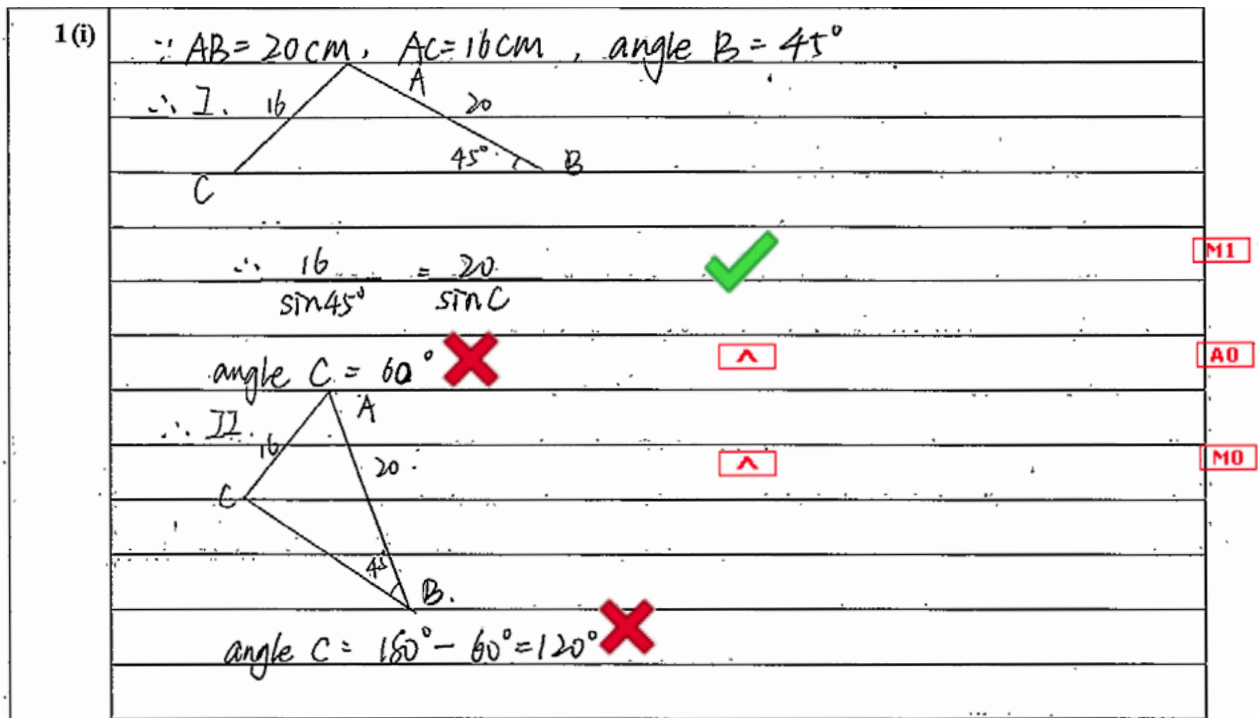 1(i)
∵ AB = 20cm, AC = 16cm, angle B = 45°
A
∴ I. 16 20
45° B
C
∴ 16/sin45° = 20/sinC
M1
angle C = 60° ^ A0
A
∴ II. 16
20 ^ M0
C
45
B.
angle C = 180° - 60° = 120°